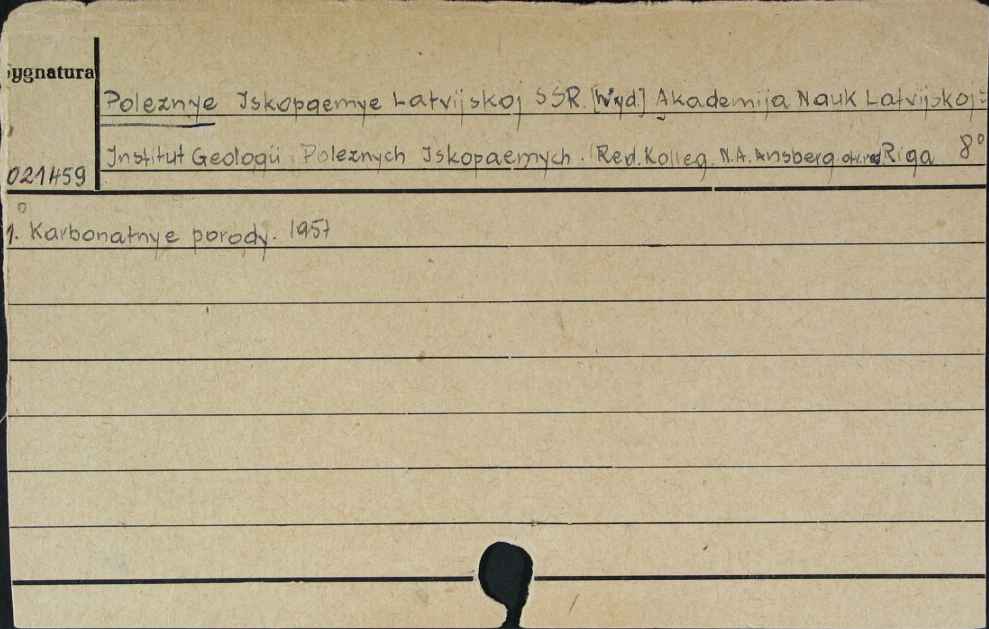 Sygnatura
Poleznye Iskopaemye Latvijskoj SSR. [Wyd.] Akademija Nauk Latvijskoj
Institut Geologii Poleznych Iskopaemych. Red. Kolleg. N.A. Ansberg Riga 8°
021459
1. Karbonatnye porody. 1957